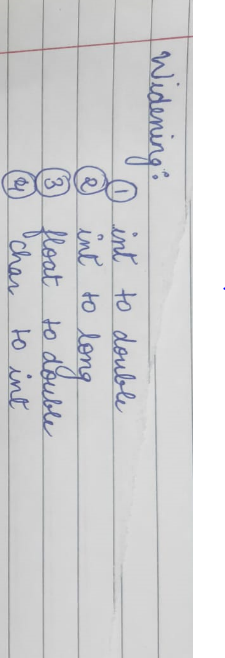 Widening:
① int to double
② int to long
③ float to double
④ char to int